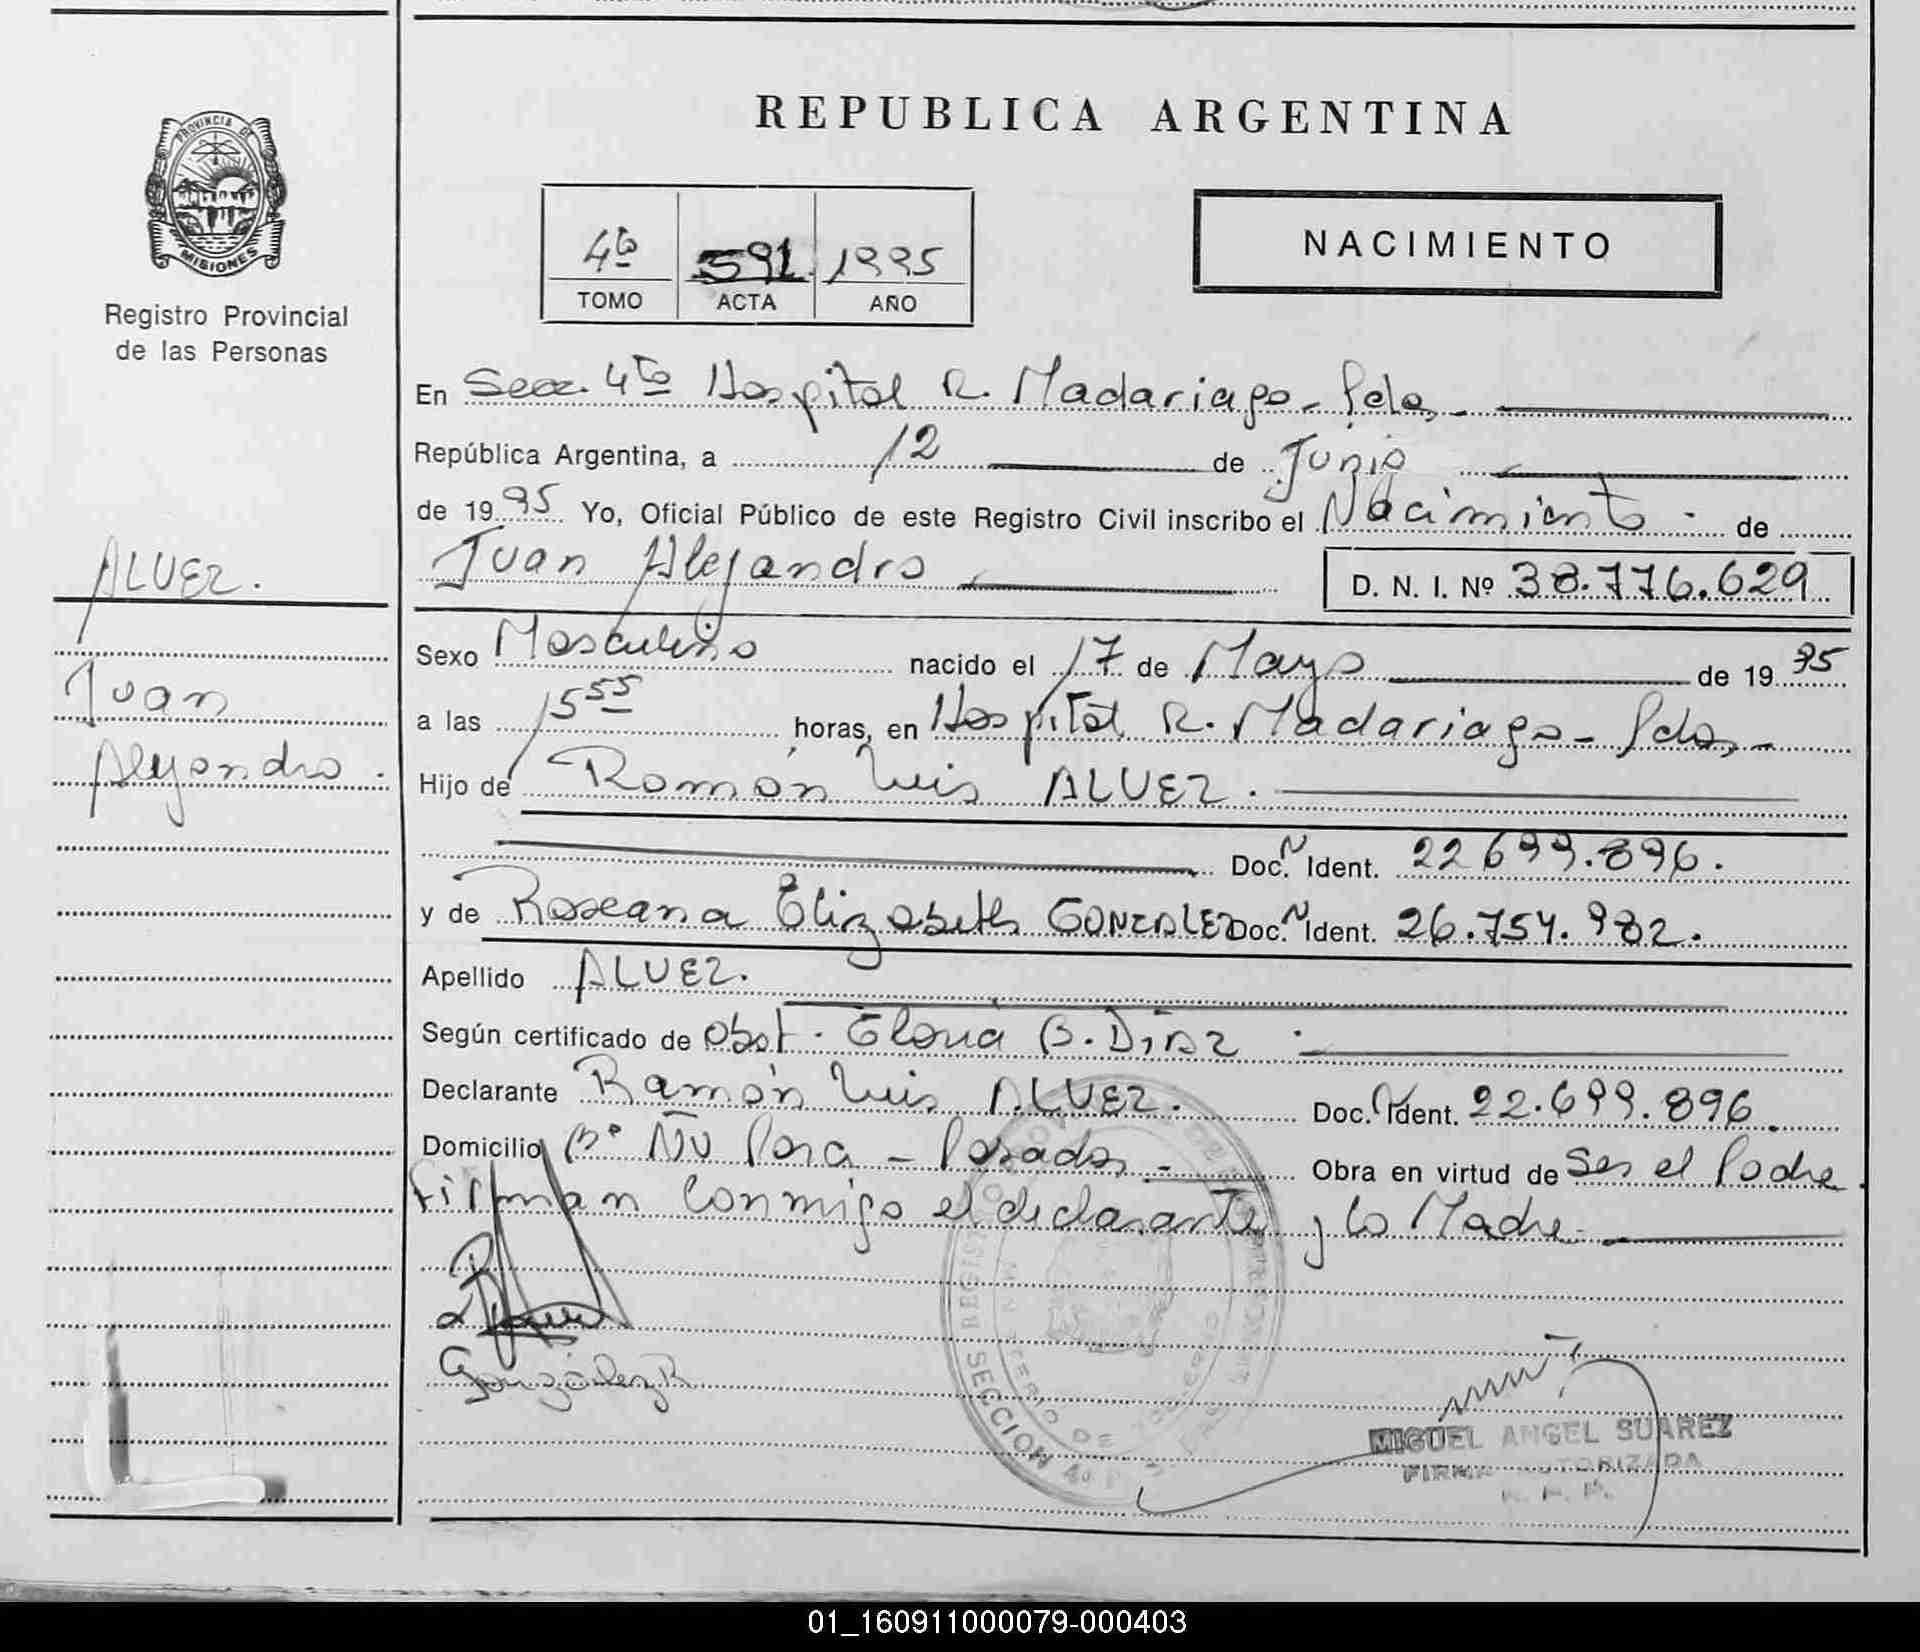 PROVINCIA DE
MISIONES
Registro Provincial
de las Personas
ALVEZ.
Juan
Alejandro.
REPUBLICA ARGENTINA
4to 591 1995
TOMO ACTA AÑO
NACIMIENTO
En Secc. 4to Hospital R. Madariaga - Pdas -
República Argentina, a 12 de Junio
de 1995 Yo, Oficial Público de este Registro Civil inscribo el Nacimiento - de
Juan Alejandro D. N. I. Nº 38.776.629
Sexo Masculino nacido el 17 de Mayo de 1995
a las 15 55 horas, en Hospital R. Madariaga - Pdas -
Hijo de Ramón Luis ALVEZ.
Doc. N Ident. 22.699.896.
y de Roxana Elizabeth GONZALEZ Doc. N Ident. 26.754.982.
Apellido ALVEZ.
Según certificado de Obst. Gloria B. Díaz
Declarante Ramón Luis ALVEZ. Doc. N Ident. 22.699.896.
Domicilio Bº Ñu Pora - Posadas - Obra en virtud de Ser el Padre.
Firman conmigo el declarante y la Madre
González R
SECCION 4a
MIGUEL ANGEL SUAREZ
FIRMA AUTORIZADA
01_160911000079-000403